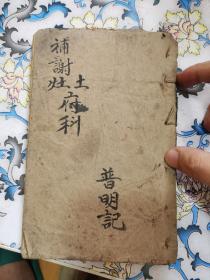 補謝土府科
灶
普明記